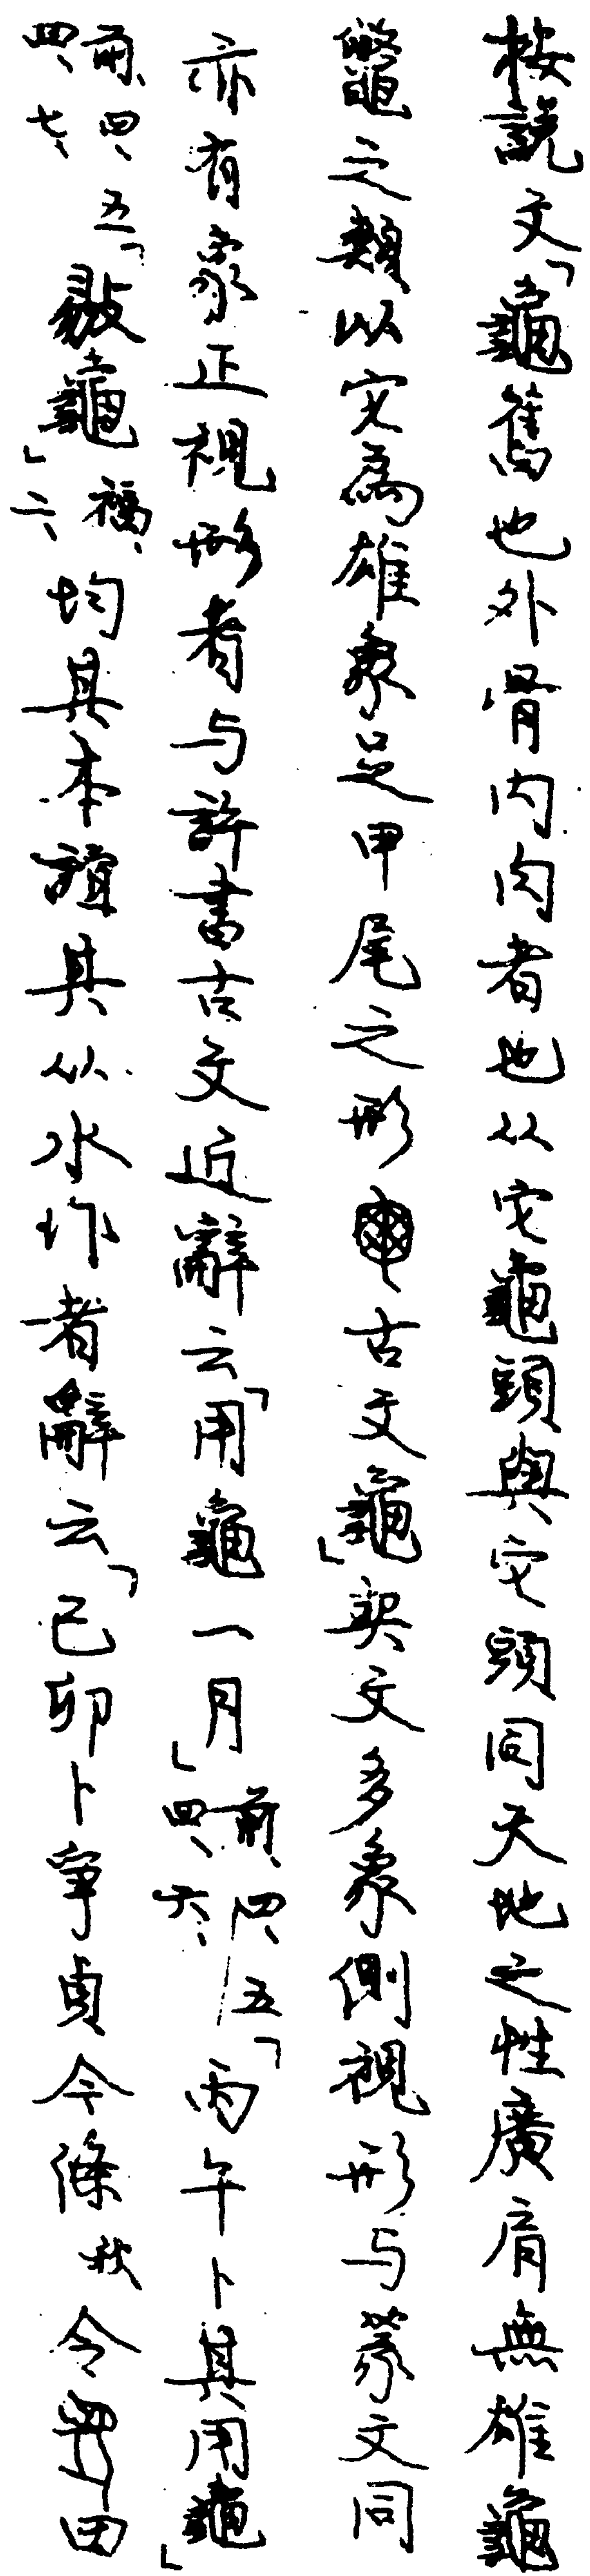 按說文「龜舊也外骨內肉者也从它龜頭與它頭同天地之性廣肩無雄龜
鼈之類以它為雄象足甲尾之形古文龜」契文多象側視形与篆文同
亦有象正視形者与許書古文近辭云「用龜一月」前、四、五四、六、「丙午卜其用龜」
前、四、五四、七、「㱿龜」福、二、均其本誼其从水作者辭云「己卯卜爭貞今條秋令田